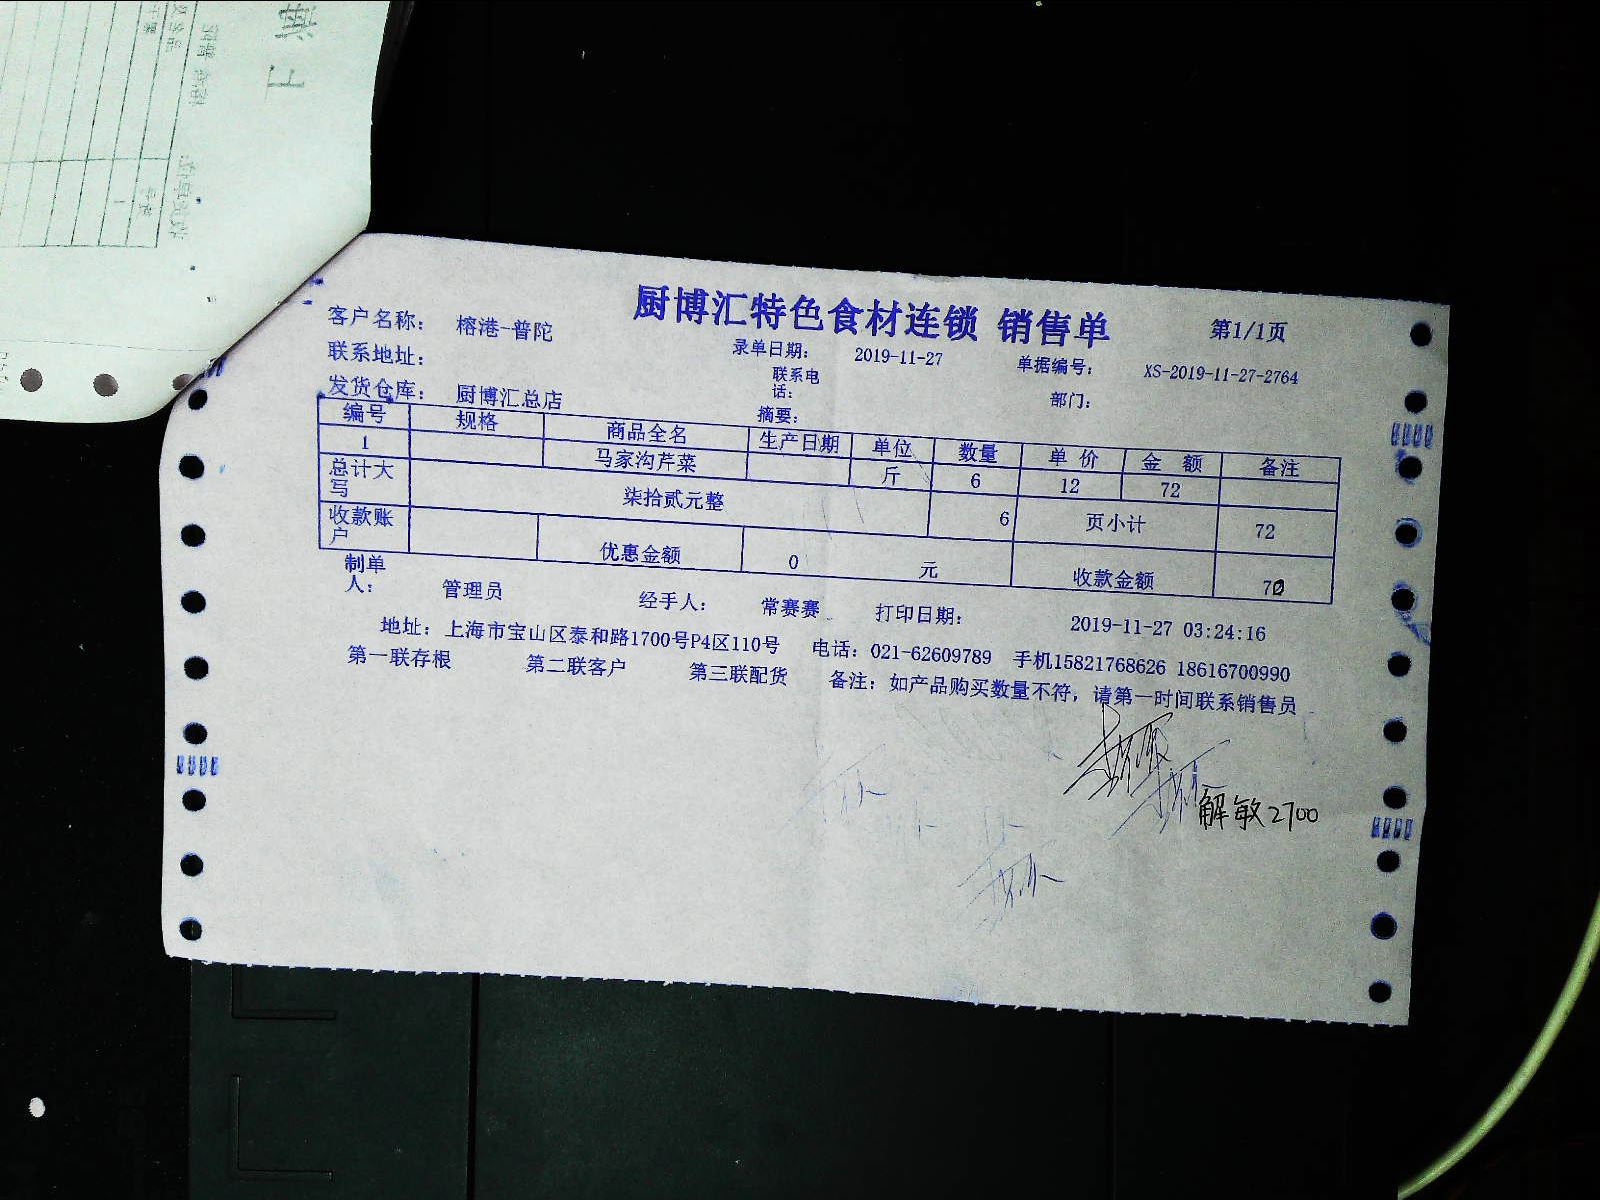 厨博汇特色食材连锁 销售单
第1/1页
客户名称： 榕港-普陀
录单日期： 2019-11-27 单据编号： XS-2019-11-27-2764
联系地址： 联系电话： 部门：
发货仓库： 厨博汇总店 摘要：
编号 规格 商品全名 生产日期 单位 数量 单 价 金 额 备注
1 马家沟芹菜 斤 6 12 72
总计大写 柒拾贰元整 6 页小计 72
收款账户 优惠金额 0 元 收款金额
制单人： 管理员 经手人： 常赛赛 打印日期： 2019-11-27 03:24:16
地址：上海市宝山区泰和路1700号P4区110号 电话：021-62609789 手机15821768626 18616700990
第一联存根 第二联客户 第三联配货 备注：如产品购买数量不符，请第一时间联系销售员
解敏2700